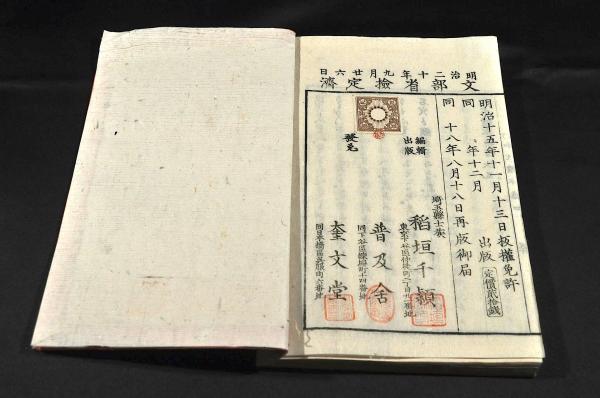 明治二十年九月廿六日
文部省檢定濟
明治十五年十一月十三日板權免許
同 年十二月 出版
定價貳拾錢
同 十八年八月十八日再版御届
編輯
出版
埼玉縣士族
稻垣千穎
普及舍
發兌
奎文堂